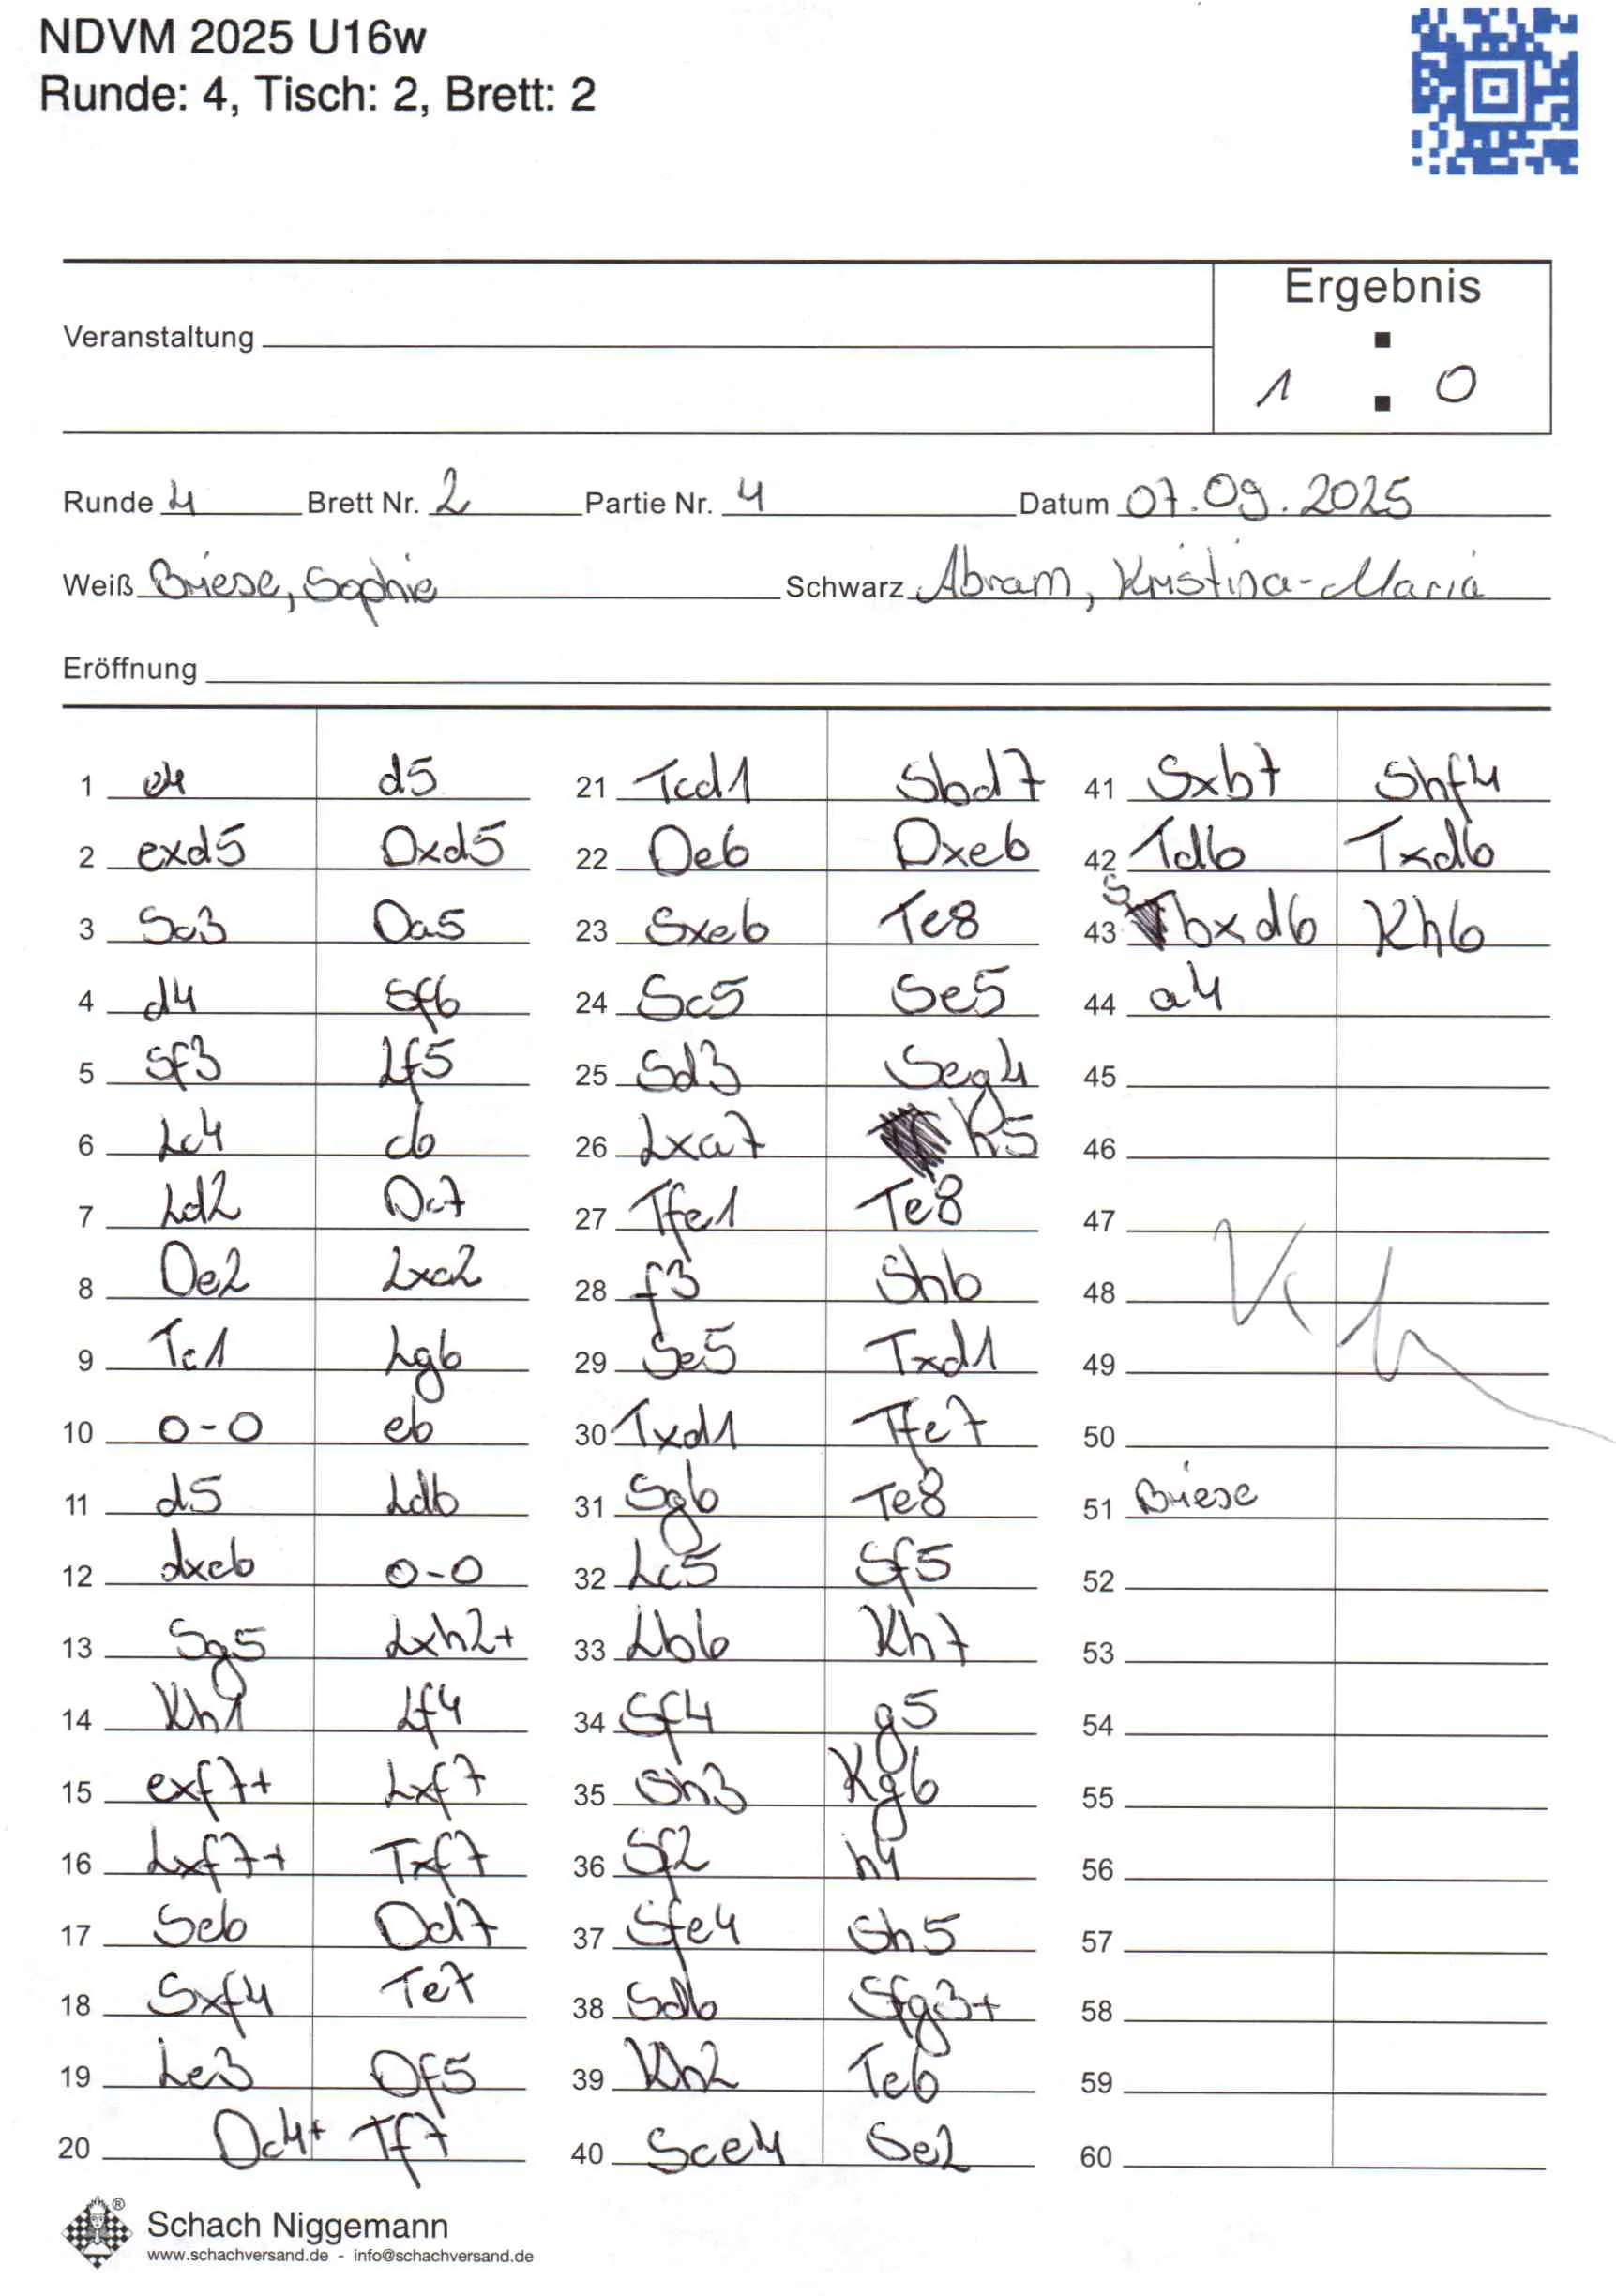 NDVM 2025 U16w
Runde: 4, Tisch: 2, Brett: 2
Ergebnis
Veranstaltung
1 : 0
Runde 4 Brett Nr. 2 Partie Nr. 4 Datum 07.09.2025
Weiß Briese, Sophie Schwarz Abram, Kristina-Maria
Eröffnung
1 e4 d5 21 Tcd1 Sbd7 41 Sxb7 Shf4
2 exd5 Dxd5 22 De6 Dxe6 42 Td6 Txd6
3 Sc3 Da5 23 Sxe6 Te8 43 Sbxd6 Kh6
4 d4 Sf6 24 Sc5 Se5 44 a4
5 Sf3 Lf5 25 Sd3 Seg4 45
6 Lc4 c6 26 Lxa7 h5 46
7 Ld2 Dc7 27 Tfe1 Te8 47
8 De2 Lxc2 28 f3 Sh6 48
9 Tc1 Lg6 29 Se5 Txd1 49
10 0-0 e6 30 Txd1 Tfe7 50
11 d5 Ld6 31 Sg6 Te8 51 Briese
12 dxe6 0-0 32 Lc5 Sf5 52
13 Sg5 Lxh2+ 33 Lb6 Kh7 53
14 Kh1 Lf4 34 Sf4 g5 54
15 exf7+ Lxf7 35 Sh3 Kg6 55
16 Lxf7+ Txf7 36 Sf2 h4 56
17 Se6 Dd7 37 Sfe4 Sh5 57
18 Sxf4 Te7 38 Sd6 Sfg3+ 58
19 Le3 Df5 39 Kh2 Te6 59
20 Dc4+ Tf7 40 Sce4 Se2 60
Schach Niggemann
www.schachversand.de - info@schachversand.de